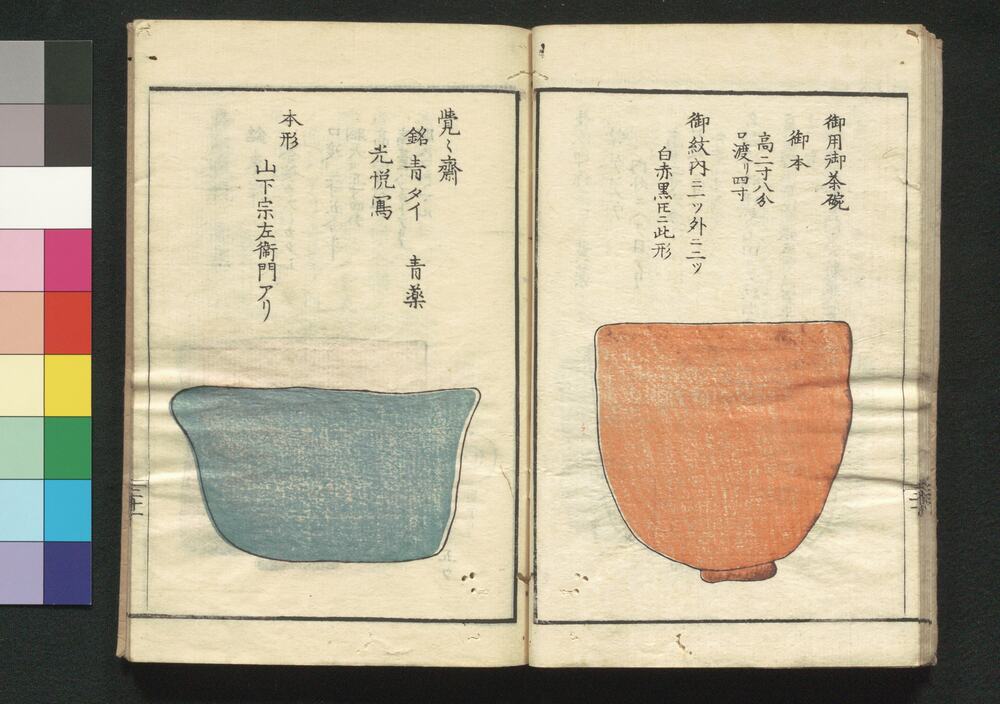 御用御茶碗
御本
高二寸八分
口渡リ四寸
御紋内ニ三ツ外ニ二ツ
白赤黒𪜈ニ此形
覺〻齋
銘青タイ 青薬
光悦冩
本形
山下宗左衛門アリ